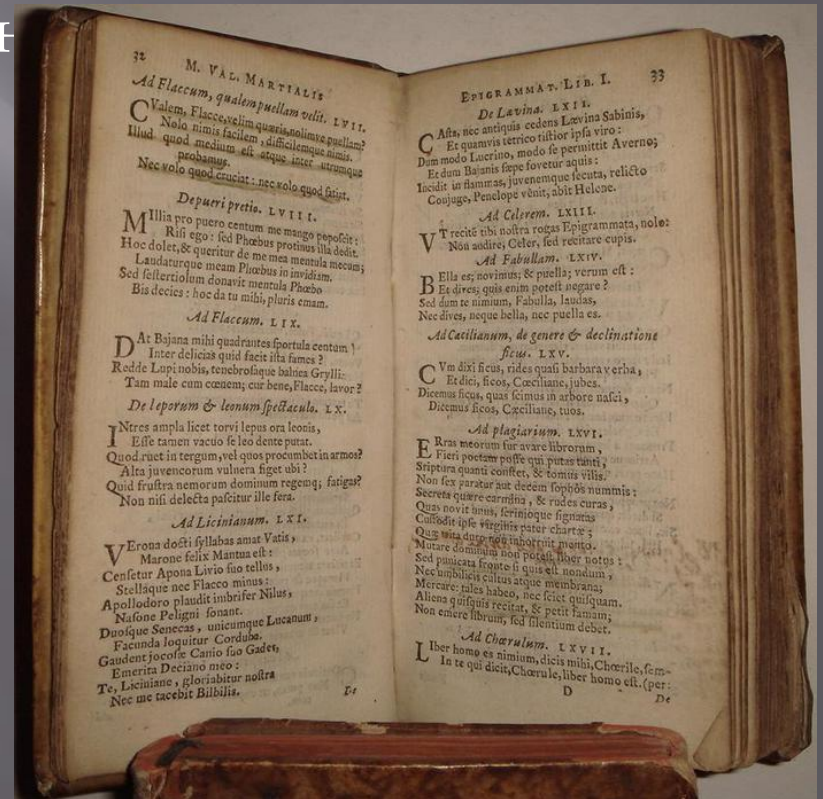 32
M. VAL. MARTIALIS
Ad Flaccum, qualem puellam velit. LVII.
QValem, Flacce, velim quæris, nolimve puellam?
Nolo nimis facilem, difficilemque nimis.
Illud quod medium est atque inter utrumque
probamus.
Nec volo quod cruciat: nec volo quod satiat.
De pueri pretio. LVIII.
MIllia pro puero centum me mango poposcit:
Risi ego: sed Phœbus protinus illa dedit.
Hoc dolet, & queritur de me mea mentula mecum;
Laudaturque meam Phœbus in invidiam.
Sed sestertiolum donavit mentula Phœbo
Bis decies: hoc da tu mihi, pluris emam.
Ad Flaccum. LIX.
DAt Bajana mihi quadrantes sportula centum!
Inter delicias quid facit ista fames?
Redde Lupi nobis, tenebrosaque balnea Grylli:
Tam male cum cœnem; cur bene, Flacce, lavor?
De leporum & leonum spectaculo. LX.
INtres ampla licet torvi lepus ora leonis,
Esse tamen vacuo se leo dente putat.
Quod ruet in tergum, vel quos procumbet in armos?
Alta juvencorum vulnera figet ubi?
Quid frustra nemorum dominum regemq; fatigas?
Non nisi delecta pascitur ille fera.
Ad Licinianum. LXI.
VErona docti syllabas amat Vatis,
Marone felix Mantua est:
Censetur Apona Livio suo tellus,
Stellaque nec Flacco minus:
Apollodoro plaudit imbrifer Nilus,
Nasone Peligni sonant.
Duosque Senecas, unicumque Lucanum,
Facunda loquitur Corduba.
Gaudent jocosæ Canio suo Gades,
Emerita Deciano meo:
Te, Liciniane, gloriabitur nostra
Nec me tacebit Bilbilis.
EPIGRAMMAT. LIB. I. 33
De Lævina. LXII.
CAsta, nec antiquis cedens Lævina Sabinis,
Et quamvis tetrico tristior ipsa viro:
Dum modo Lucrino, modo se permittit Averno;
Et dum Bajanis sæpe fovetur aquis:
Incidit in flammas, juvenemque secuta, relicto
Conjuge, Penelope vênit, abît Helene.
Ad Celerem. LXIII.
VT recitê tibi nostra rogas Epigrammata, nolo:
Non audire, Celer, sed recitare cupis.
Ad Fabullam. LXIV.
BElla es; novimus; & puella; verum est:
Et dives; quis enim potest negare?
Sed dum te nimium, Fabulla, laudas,
Nec dives, neque bella, nec puella es.
Ad Cæcilianum, de genere & declinatione
ficus. LXV.
CVm dixi ficus, rides quasi barbara verba,
Et dici, ficos, Cæciliane, jubes.
Dicemus ficus, quas scimus in arbore nasci,
Dicemus ficos, Cæciliane, tuos.
Ad plagiarium. LXVI.
ERras meorum fur avare librorum,
Fieri poetam posse qui putas tanti,
Scriptura quanti constet, & tomus vilis.
Non sex paratur aut decem sophôs nummis:
Secreta quære carmina, & rudes curas,
Quas novit unus, scrinioque signatas
Custodit ipse virginis pater chartæ;
Quæ trita duro non inhorruit mento.
Mutare dominum non potest liber notus:
Sed pumicata fronte si quis est nondum,
Nec umbilicis cultus atque membrana;
Mercare: tales habeo, nec sciet quisquam.
Aliena quisquis recitat, & petit famam;
Non emere librum, sed silentium debet.
Ad Chœrulum. LXVII.
LIber homo es nimium, dicis mihi, Chœrile, sem-
In te qui dicit, Chœrule, liber homo est. (per:
D
De